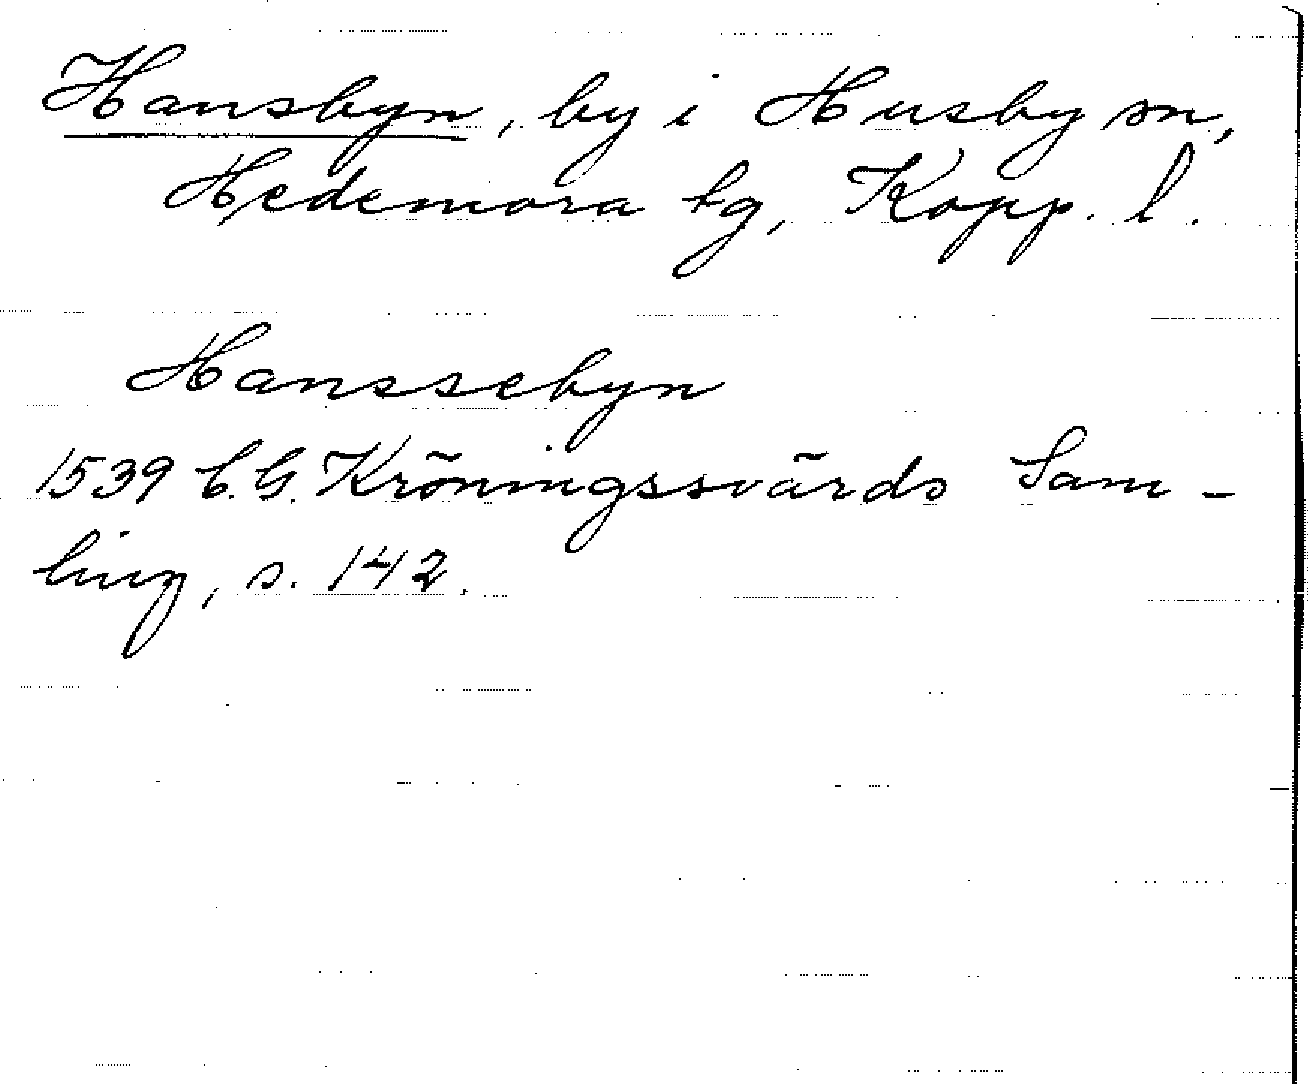 Hansbyn, by i Husby sn,
Hedemora tg, Kopp. l.
Hanssebyn
1539 C.G. Kröningssvärds Sam-
ling, s. 142.